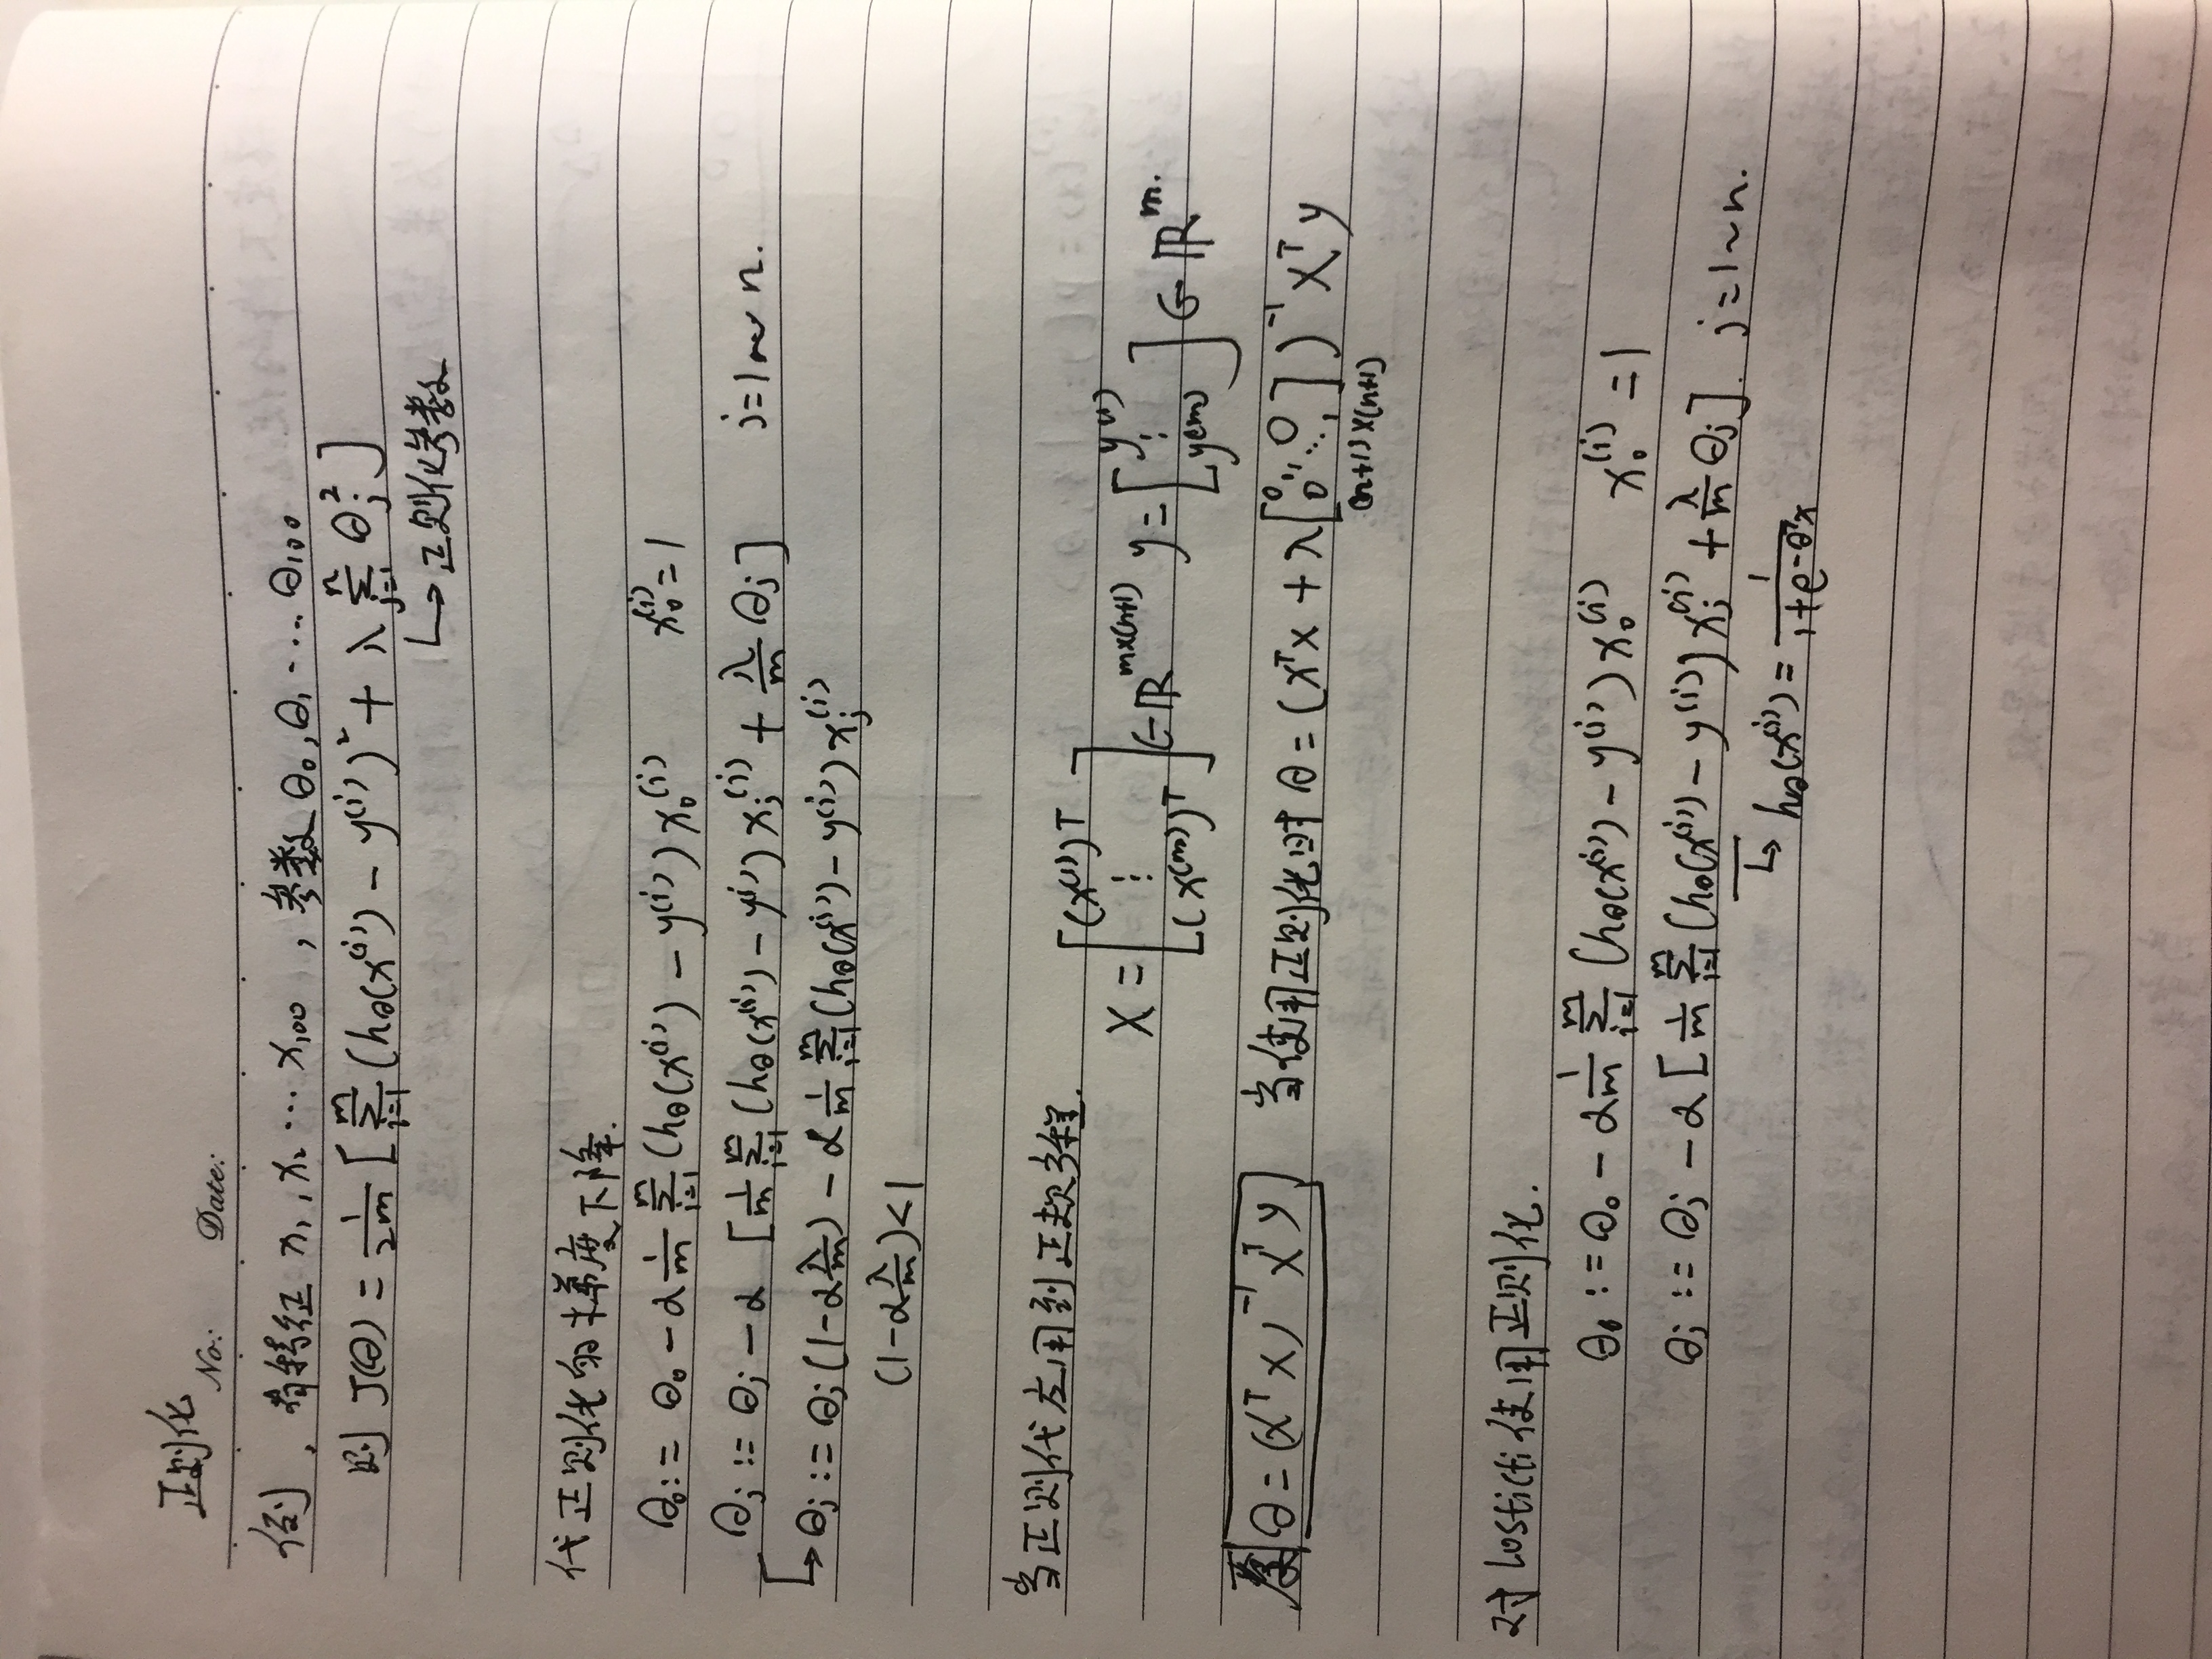 正则化
No: Date:
例，有特征 x₁, x₂ ⋯ x₁₀₀ ，参数 θ₀, θ₁ ⋯ θ₁₀₀
则 J(θ) = 1/2m [ ∑_{i=1}^{m} (h_θ(x^{(i)}) − y^{(i)})² + λ ∑_{j=1}^{n} θ_j² ]
↳ 正则化参数
代正则化的梯度下降.
θ₀ := θ₀ − α 1/m ∑_{i=1}^{m} (h_θ(x^{(i)}) − y^{(i)}) x₀^{(i)} x₀^{(i)} = 1
θ_j := θ_j − α [ 1/m ∑_{i=1}^{m} (h_θ(x^{(i)}) − y^{(i)}) x_j^{(i)} + λ/m θ_j ] j=1~n.
↳ θ_j := θ_j (1−α λ/m) − α 1/m ∑_{i=1}^{m} (h_θ(x^{(i)}) − y^{(i)}) x_j^{(i)}
(1−α λ/m) < 1
当正则代应用到正规方程.
X = [ (x^{(1)})^T ⋮ (x^{(m)})^T ] ∈ ℝ^{m×(n+1)} y = [ y^{(1)} ⋮ y^{(m)} ] ∈ ℝ^m.
θ = (X^T X)^{−1} X^T y 当使用正则化时 θ = (X^T X + λ [ 0 1 0 0 ⋱ 1 ] )^{−1} X^T y
(n+1)×(n+1)
对 Losticti 使用正则化.
θ₀ := θ₀ − α 1/m ∑_{i=1}^{m} (h_θ(x^{(i)}) − y^{(i)}) x₀^{(i)} x₀^{(i)} = 1
θ_j := θ_j − α [ 1/m ∑_{i=1}^{m} (h_θ(x^{(i)}) − y^{(i)}) x_j^{(i)} + λ/m θ_j ]. j=1~n.
↳ h_θ(x^{(i)}) = 1/(1+e^{−θ^T x})